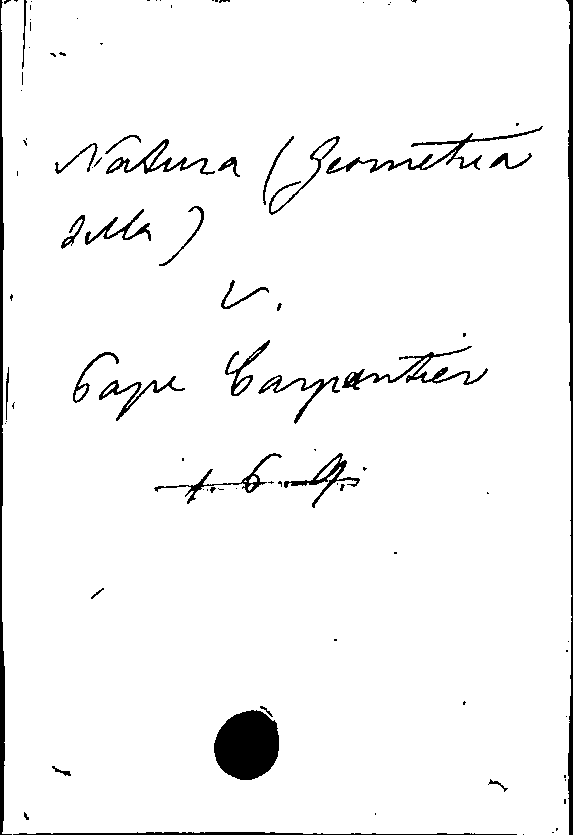 Natura (Geometria
della)
V.
Pape Carpantier
1. 6. 9.